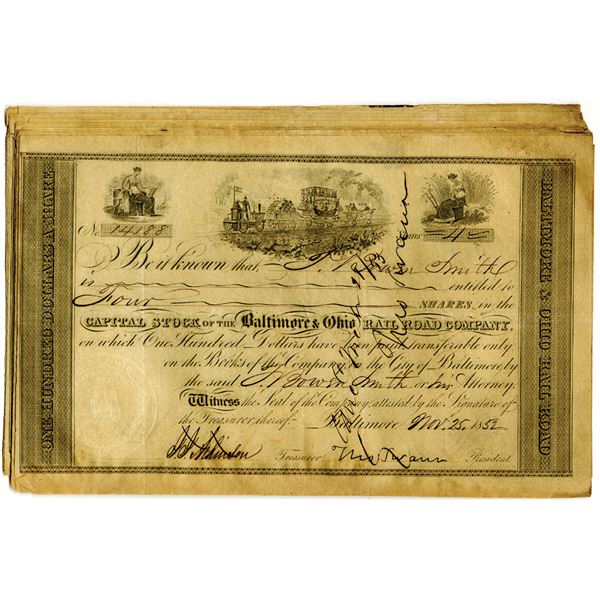 ONE HUNDRED DOLLARS A SHARE
No. 14188
Shares -4-
Be it known that J. Bowen Smith
is entitled to
Four SHARES, in the
CAPITAL STOCK OF THE Baltimore & Ohio RAIL ROAD COMPANY,
on which One Hundred Dollars have been paid transferable only
on the Books of the Company, in the City of Baltimore by
the said J. Bowen Smith or his Attorney.
Witness the Seal of the Company, attested by the Signature of
the Treasurer thereof. Baltimore Nov. 25, 1852
Treasurer Tho. Swann President
Tho Swann
BALTIMORE & OHIO RAIL ROAD